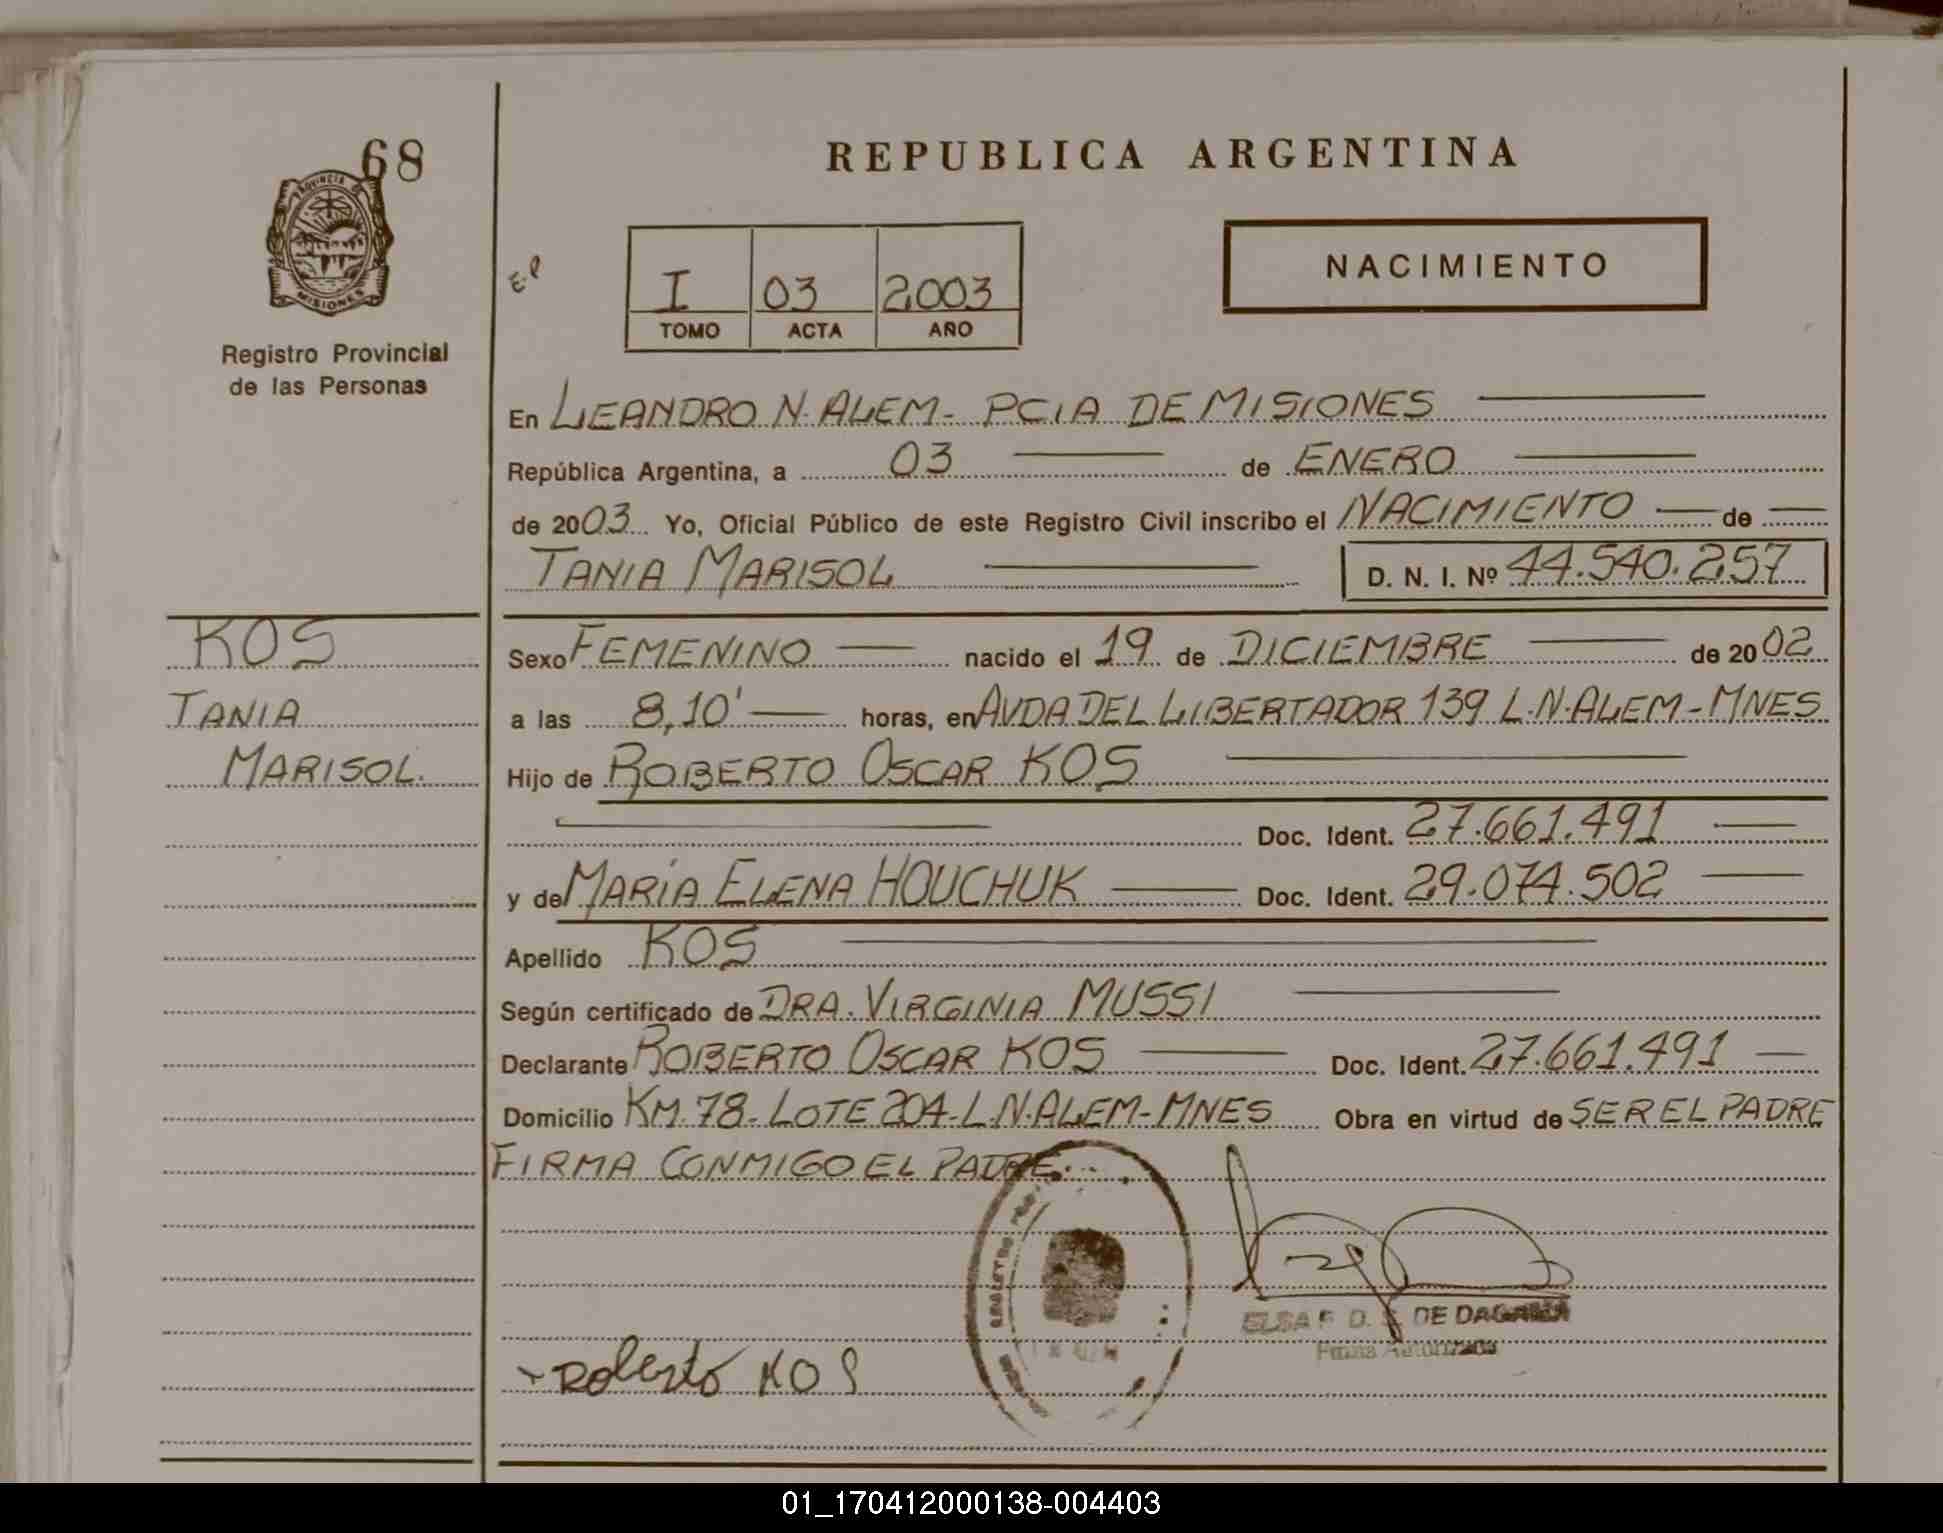 68
PROVINCIA DE
MISIONES
Registro Provincial
de las Personas
REPUBLICA ARGENTINA
I 03 2003
TOMO ACTA AÑO
NACIMIENTO
En LEANDRO N. ALEM - PCIA DE MISIONES
República Argentina, a 03 de ENERO
de 2003 Yo, Oficial Público de este Registro Civil inscribo el NACIMIENTO de
TANIA MARISOL D. N. I. Nº 44.540.257
KOS
TANIA
MARISOL.
Sexo FEMENINO nacido el 19 de DICIEMBRE de 2002
a las 8,10' horas, en AVDA DEL LIBERTADOR 139 L.N.ALEM-MNES
Hijo de ROBERTO OSCAR KOS
Doc. Ident. 27.661.491
y de MARÍA ELENA HOUCHUK Doc. Ident. 29.074.502
Apellido KOS
Según certificado de DRA. VIRGINIA MUSSI
Declarante ROBERTO OSCAR KOS Doc. Ident. 27.661.491
Domicilio KM.78-LOTE 204-L.N.ALEM-MNES Obra en virtud de SER EL PADRE
FIRMA CONMIGO EL PADRE.
ELSA F. D. DE
Firma Autorizada
Roberto KOS
01_170412000138-004403